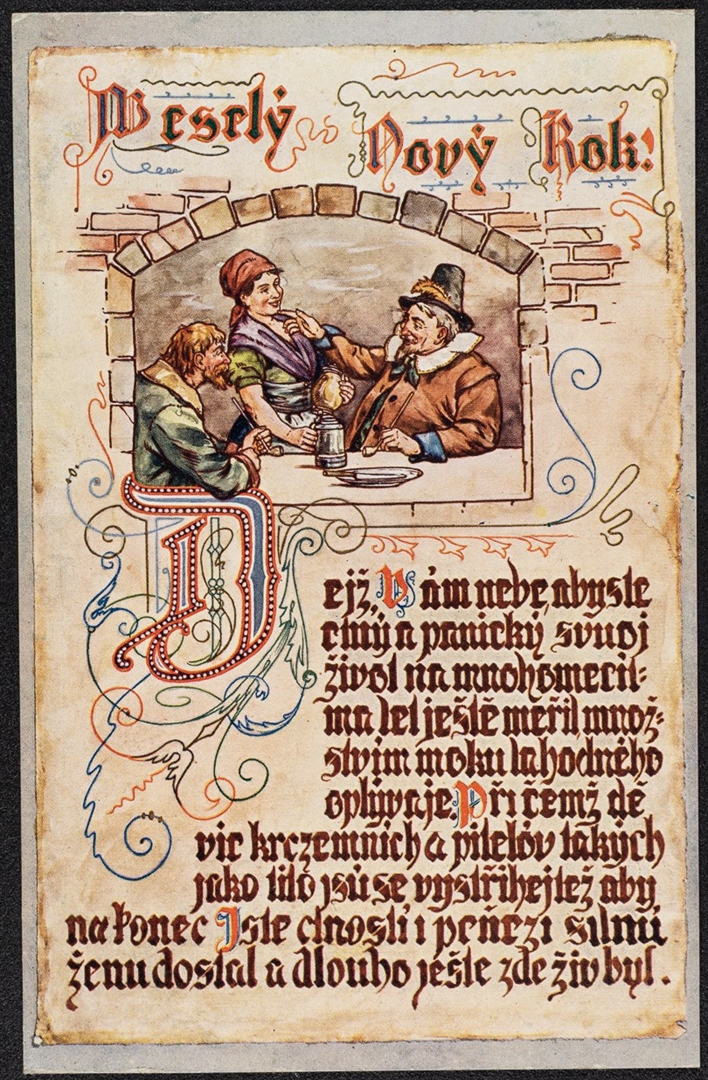 Veselý Nový Rok!
Dejž, Vám nebe, abyste
ctný a panický svuoj
život na mnohomecit=
ma let ještě měřil, množ=
stvím moku lahodného
oplývaje. Při čemž dě
vic krczemních a pitelóv takých
jako tito jsú se vystříhejtež aby
na konec Jste ctností i peňezi silnú
ženu dostal a dlouho ješte zde živ byl.